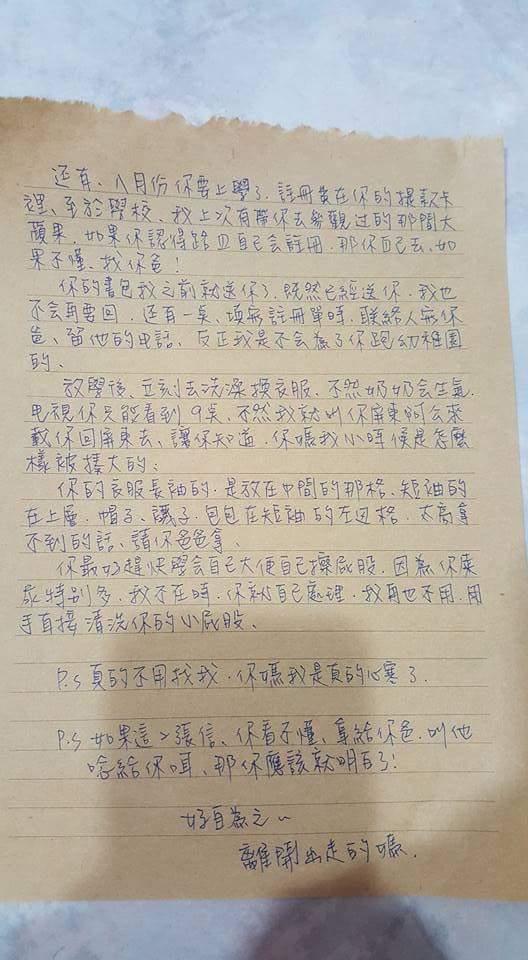 还有、八月份你要上學了．註冊費在你的提款卡
裡、至於學校、我上次有帶你去參觀过的那間大
蘋果．如果你認得路且自己会註冊．那你自己去、如
果不懂、找你爸！
你的書包我之前就送你了．既然已經送你．我也
不会再要回．还有一奌、填寫註冊單時．联絡人寫你
爸、留他的电話、反正我是不会為了你跑幼稚園
的、
放學後、立刻去洗澡換衣服、不然奶奶会生氣．
电視你只能看到9奌、不然我就叫你屏東阿公來
載你回屏東去、讓你知道．你媽我小時候是怎麼
樣被揍大的；
你的衣服長袖的．是放在中間的那格．短袖的
在上層．帽子、襪子．包包在短袖的左边格．太高拿
不到的話、請你爸爸拿．
你最好趕快學会自己大便自己擦屁股．因為你
尿特别多．我不在時．你就自己處理．我再也不用．用
手直接清洗你的小屁股、
P.S 真的不用找我．你媽我是真的心寒了．
P.S 如果這2張信、你看不懂、拿給你爸．叫他
唸給你听、那你應該就明白了！
好自為之～
離開出走的媽．